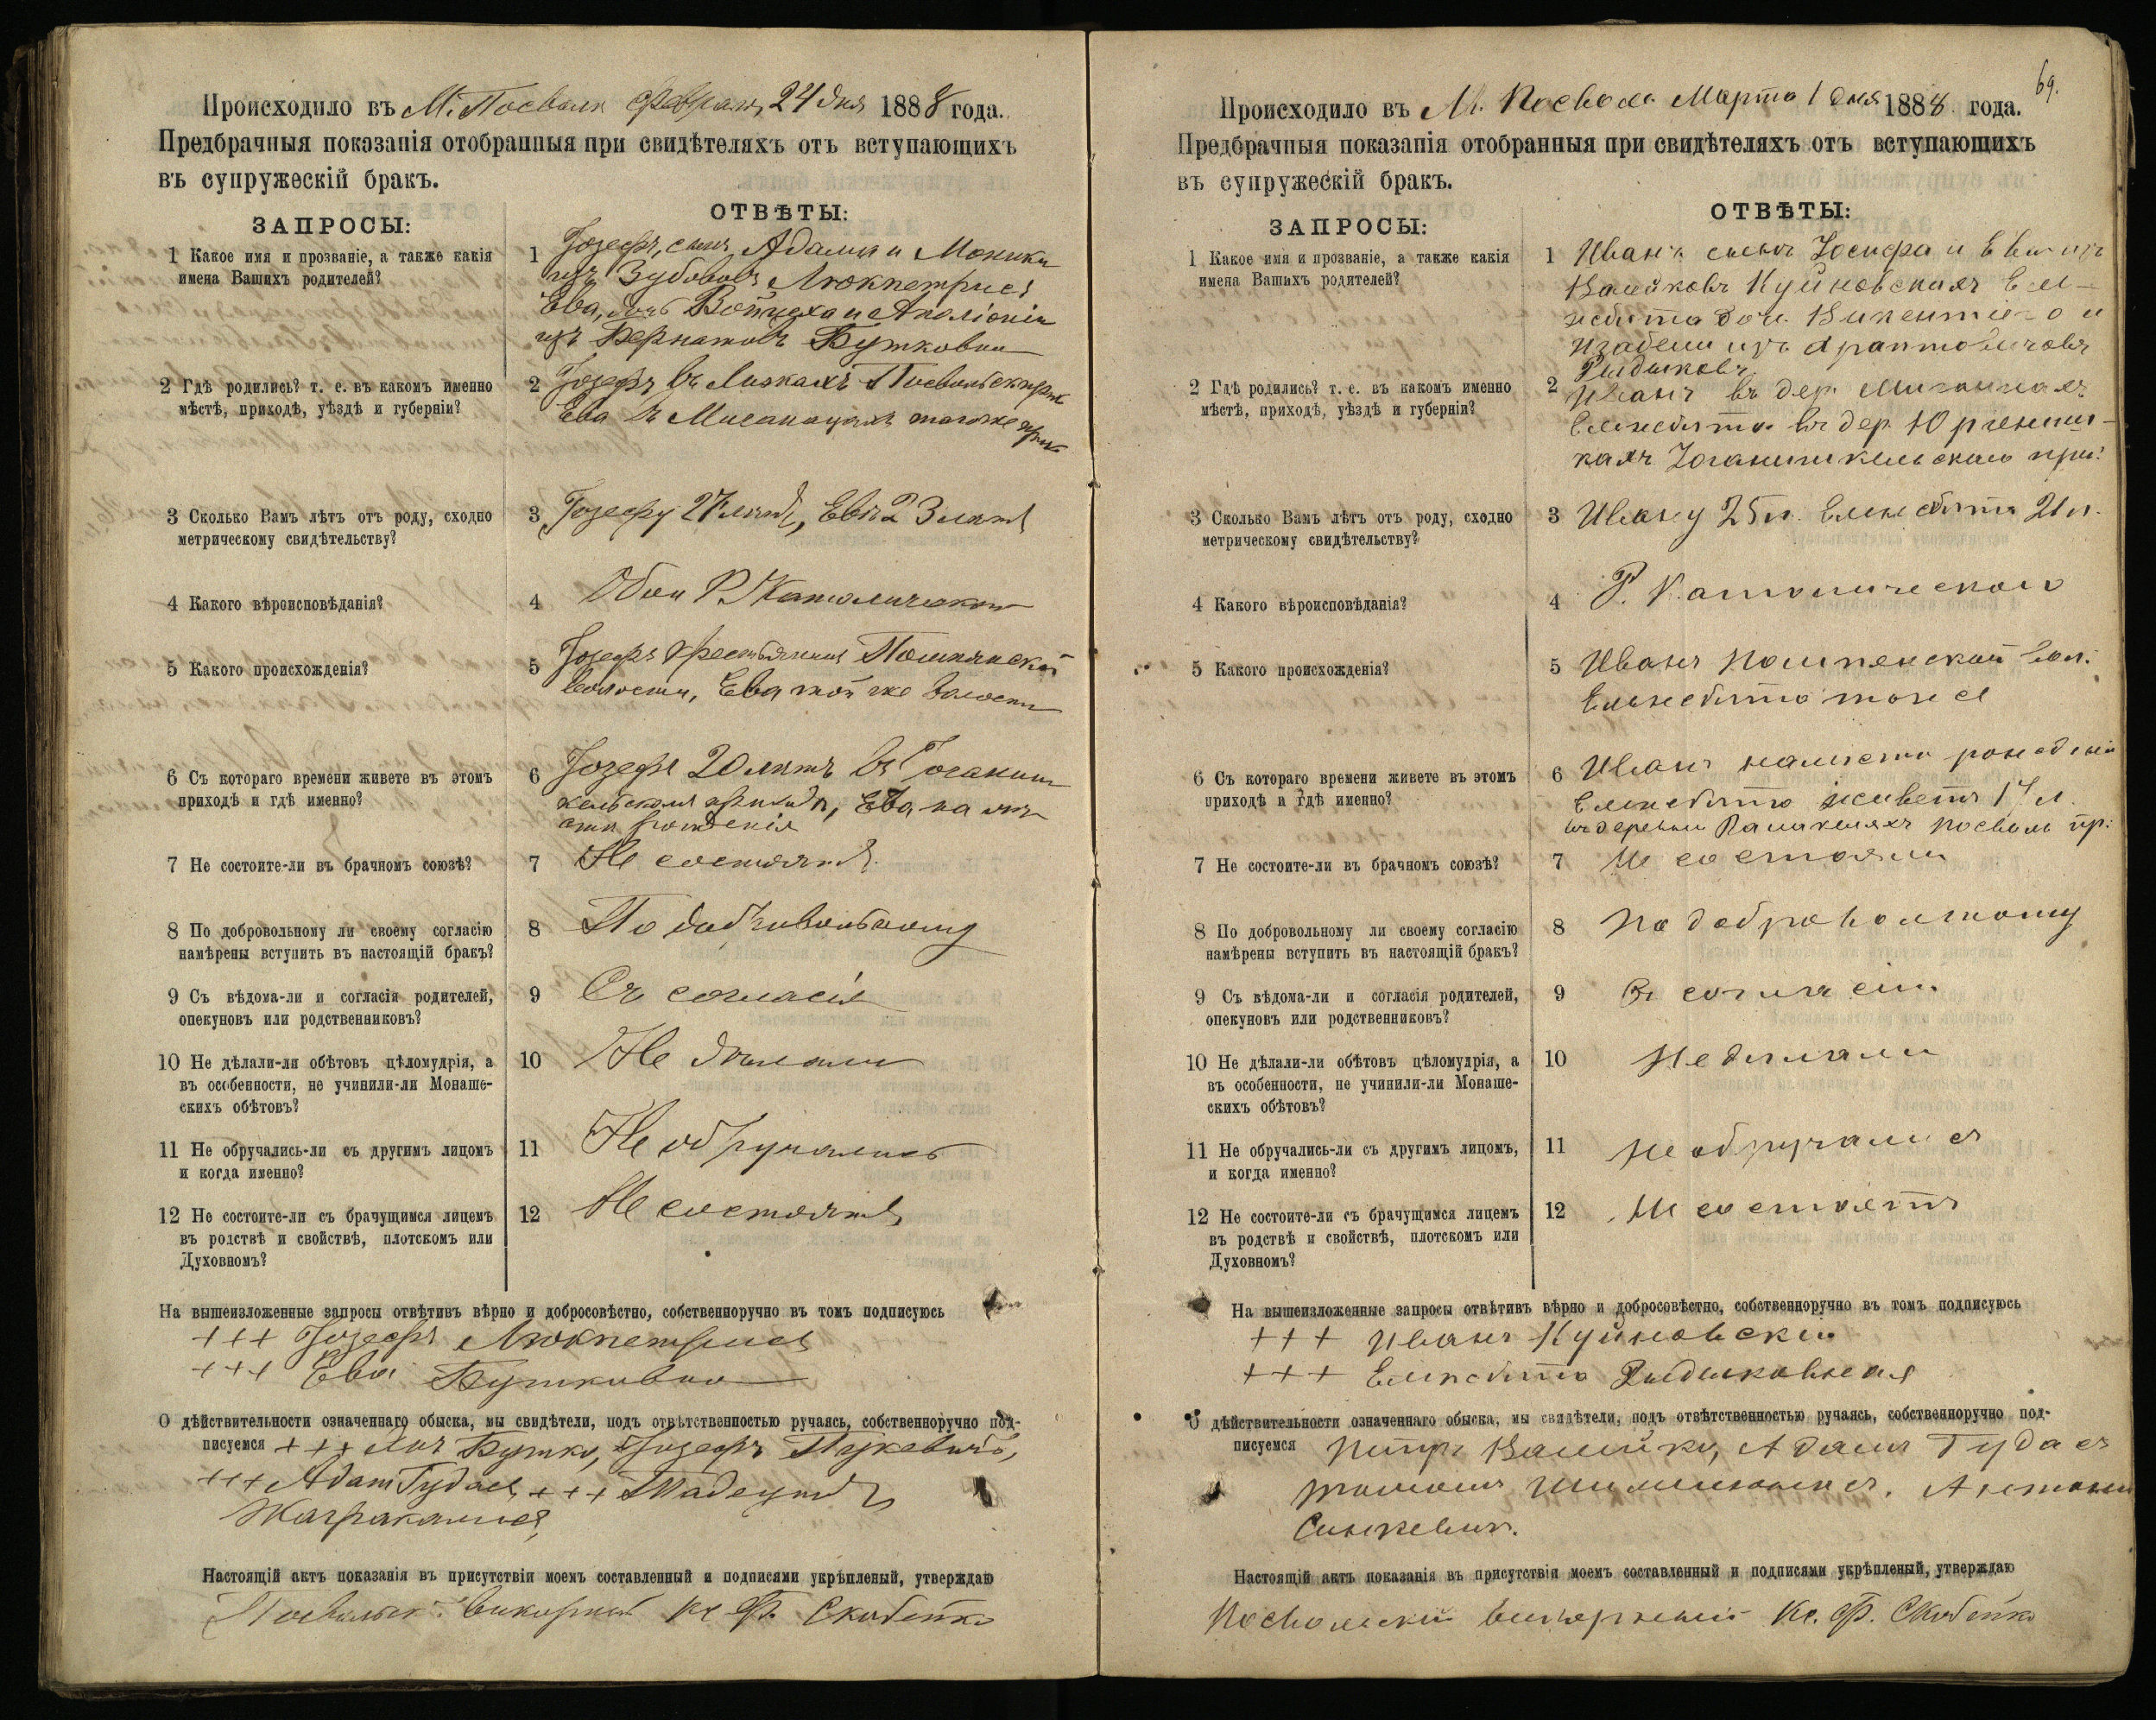 Происходило въ М. Посволи Февраля, 24 дня 1888 года.
Предбрачныя показанія отобранныя при свидѣтеляхъ отъ вступающихъ
въ супружескій бракъ.
ЗАПРОСЫ:
ОТВѢТЫ:
1 Какое имя и прозваніе, а также какія
имена Вашихъ родителей?
1 Іозефъ, сынъ Адама и Моники
изъ Зубововъ Люкпетрисъ
Ева, дочь Войцеха и Аполіоніи
изъ Бернатовъ Бутковна
2 Гдѣ родились? т. е. въ какомъ именно
мѣстѣ, приходѣ, уѣздѣ и губерніи?
2 Іозефъ въ
Ева въ тогоже прих.
3 Сколько Вамъ лѣтъ отъ роду, сходно
метрическому свидѣтельству?
3 Іозефу 27 лѣтъ, Евѣ 23 лѣтъ
4 Какого вѣроисповѣданія?
4 Обои Р. Католическаго
5 Какого происхожденія?
5 Іозефъ крестьянинъ Помпянской
волости, Ева той же волости
6 Съ котораго времени живете въ этомъ
приходѣ и гдѣ именно?
6 Іозефъ 20 лѣтъ въ Іоганиш
кельскомъ приходѣ, Ева на мѣ
стѣ рожденія
7 Не состоите-ли въ брачномъ союзѣ?
7 Не состоятъ.
8 По добровольному ли своему согласію
намѣрены вступить въ настоящій бракъ?
8 По добровольному
9 Съ вѣдома-ли и согласія родителей,
опекуновъ или родственниковъ?
9 Съ согласія
10 Не дѣлали-ли обѣтовъ цѣломудрія, а
въ особенности, не учинили-ли Монаше-
скихъ обѣтовъ?
10 Не дѣлали
11 Не обручались-ли съ другимъ лицомъ
и когда именно?
11 Не обручались
12 Не состоите-ли съ брачущимся лицемъ
въ родствѣ и свойствѣ, плотскомъ или
Духовномъ?
12 Не состоятъ
На вышеизложенные запросы отвѣтивъ вѣрно и добросовѣстно, собственноручно въ томъ подписуюсь
+++ Іозефъ Люкпетрисъ
+++ Ева Бутковна
О дѣйствительности означеннаго обыска, мы свидѣтели, подъ отвѣтственностью ручаясь, собственноручно под-
писуемся +++ Янъ Бутко, Іозефъ
+++ Адам Гудасъ, +++ Тадеушъ
Настоящій актъ показанія въ присутствіи моемъ составленный и подписями укрѣпленый, утверждаю
Посвольск. викарный Кс. Ф. Скабейко
69.
Происходило въ М. Посволь Марта 1 дня 1888 года.
Предбрачныя показанія отобранныя при свидѣтеляхъ отъ вступающихъ
въ супружескій бракъ.
ЗАПРОСЫ:
ОТВѢТЫ:
1 Какое имя и прозваніе, а также какія
имена Вашихъ родителей?
1 Иванъ сынъ Іосифа и Евы изъ
Валейковъ Куйновскихъ Ели-
жбѣта доч. Викентіего и
Изабели изъ
2 Гдѣ родились? т. е. въ какомъ именно
мѣстѣ, приходѣ, уѣздѣ и губерніи?
2 Иванъ въ дер.
Елжбѣта въ дер.
кахъ Іоганишкельскаго при:
3 Сколько Вамъ лѣтъ отъ роду, сходно
метрическому свидѣтельству?
3 Ивану 25 л. Елжбѣта 21 л.
4 Какого вѣроисповѣданія?
4 Р. Католическаго
5 Какого происхожденія?
5 Иванъ Помпянской вол:
Елжебѣта тоже
6 Съ котораго времени живете въ этомъ
приходѣ и гдѣ именно?
6 Иванъ на мѣстѣ рожденія
Елжбѣта живетъ 17 л.
въ деревни посволь пр:
7 Не состоите-ли въ брачномъ союзѣ?
7 Не состояли
8 По добровольному ли своему согласію
намѣрены вступить въ настоящій бракъ?
8 По добровольному
9 Съ вѣдома-ли и согласія родителей,
опекуновъ или родственниковъ?
9 Въ согласіи
10 Не дѣлали-ли обѣтовъ цѣломудрія, а
въ особенности, не учинили-ли Монаше-
скихъ обѣтовъ?
10 Не дѣлали
11 Не обручались-ли съ другимъ лицомъ,
и когда именно?
11 Не обручалися
12 Не состоите-ли съ брачущимся лицемъ
въ родствѣ и свойствѣ, плотскомъ или
Духовномъ?
12 Не состоятъ
На вышеизложенные запросы отвѣтивъ вѣрно и добросовѣстно, собственноручно въ томъ подписуюсь
+++ Иванъ Куйновски
+++ Елжбѣта
О дѣйствительности означеннаго обыска, мы свидѣтели, подъ отвѣтственностью ручаясь, собственноручно под-
писуемся Петръ Валейко, Адамъ Гудасъ
Антони
Синкевич.
Настоящій актъ показанія въ присутствіи моемъ составленный и подписями укрѣпленый, утверждаю
Посвольскій викарный Кс. Ф. Скабейко